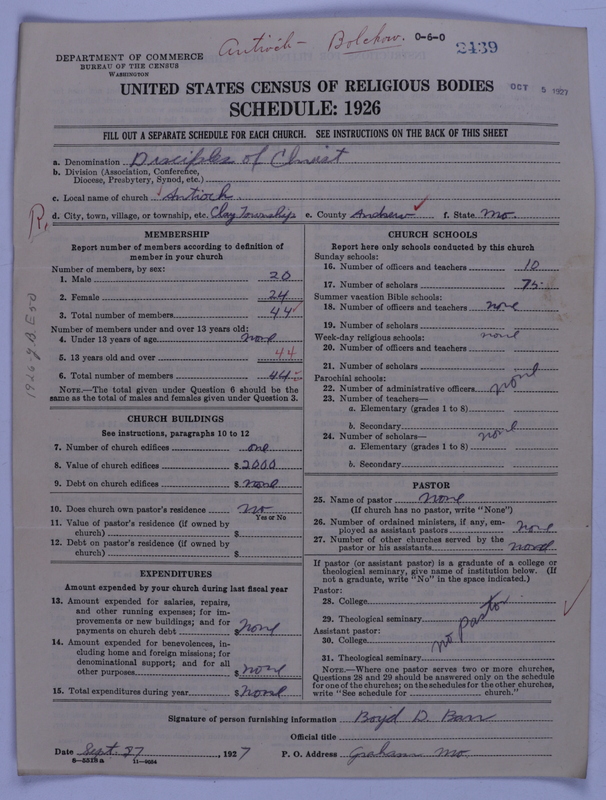 Antioch - Bolckow. 0-6-0
2439
DEPARTMENT OF COMMERCE
BUREAU OF THE CENSUS
WASHINGTON
UNITED STATES CENSUS OF RELIGIOUS BODIES
OCT 5 1927
SCHEDULE: 1926
FILL OUT A SEPARATE SCHEDULE FOR EACH CHURCH. SEE INSTRUCTIONS ON THE BACK OF THIS SHEET
a. Denomination Disciples of Christ
b. Division (Association, Conference,
Diocese, Presbytery, Synod, etc.)
c. Local name of church Antioch
d. City, town, village, or township, etc. Clay Township e. County Andrew f. State Mo.
R.
MEMBERSHIP
Report number of members according to definition of
member in your church
Number of members, by sex:
1. Male 20
2. Female 24
3. Total number of members 44
Number of members under and over 13 years old:
4. Under 13 years of age none
5. 13 years old and over 44
6. Total number of members 44
NOTE.—The total given under Question 6 should be
same as the total of males and females given under Question 3.
CHURCH BUILDINGS
See instructions, paragraphs 10 to 12
7. Number of church edifices one
8. Value of church edifices $2000
9. Debt on church edifices $none
10. Does church own pastor's residence No
Yes or No
11. Value of pastor's residence (if owned by
church) $
12. Debt on pastor's residence (if owned by
church) $
EXPENDITURES
Amount expended by your church during last fiscal year
13. Amount expended for salaries, repairs,
and other running expenses; for im-
provements or new buildings; and for
payments on church debt $none
14. Amount expended for benevolences, in-
cluding home and foreign missions; for
denominational support; and for all
other purposes $none
15. Total expenditures during year $none
CHURCH SCHOOLS
Report here only schools conducted by this church
Sunday schools:
16. Number of officers and teachers 10
17. Number of scholars 75
Summer vacation Bible schools:
18. Number of officers and teachers none
19. Number of scholars
Week-day religious schools: none
20. Number of officers and teachers
21. Number of scholars
Parochial schools:
22. Number of administrative officers none
23. Number of teachers—
a. Elementary (grades 1 to 8)
b. Secondary none
24. Number of scholars— none
a. Elementary (grades 1 to 8)
b. Secondary
PASTOR
25. Name of pastor none
(If church has no pastor, write "None")
26. Number of ordained ministers, if any, em-
ployed as assistant pastors none
27. Number of other churches served by the
pastor or his assistants none
If pastor (or assistant pastor) is a graduate of a college or
theological seminary, give name of institution below. (If
not a graduate, write "No" in the space indicated.)
Pastor:
28. College
29. Theological seminary
no pastor
Assistant pastor:
30. College
31. Theological seminary
NOTE.—Where one pastor serves two or more churches,
Questions 28 and 29 should be answered only on the schedule
for one of the churches; on the schedules for the other churches,
write "See schedule for church."
Signature of person furnishing information Boyd D. Barr
Official title
Date Sept. 27, 1927 P. O. Address Graham Mo.
8-5518a 11-9034